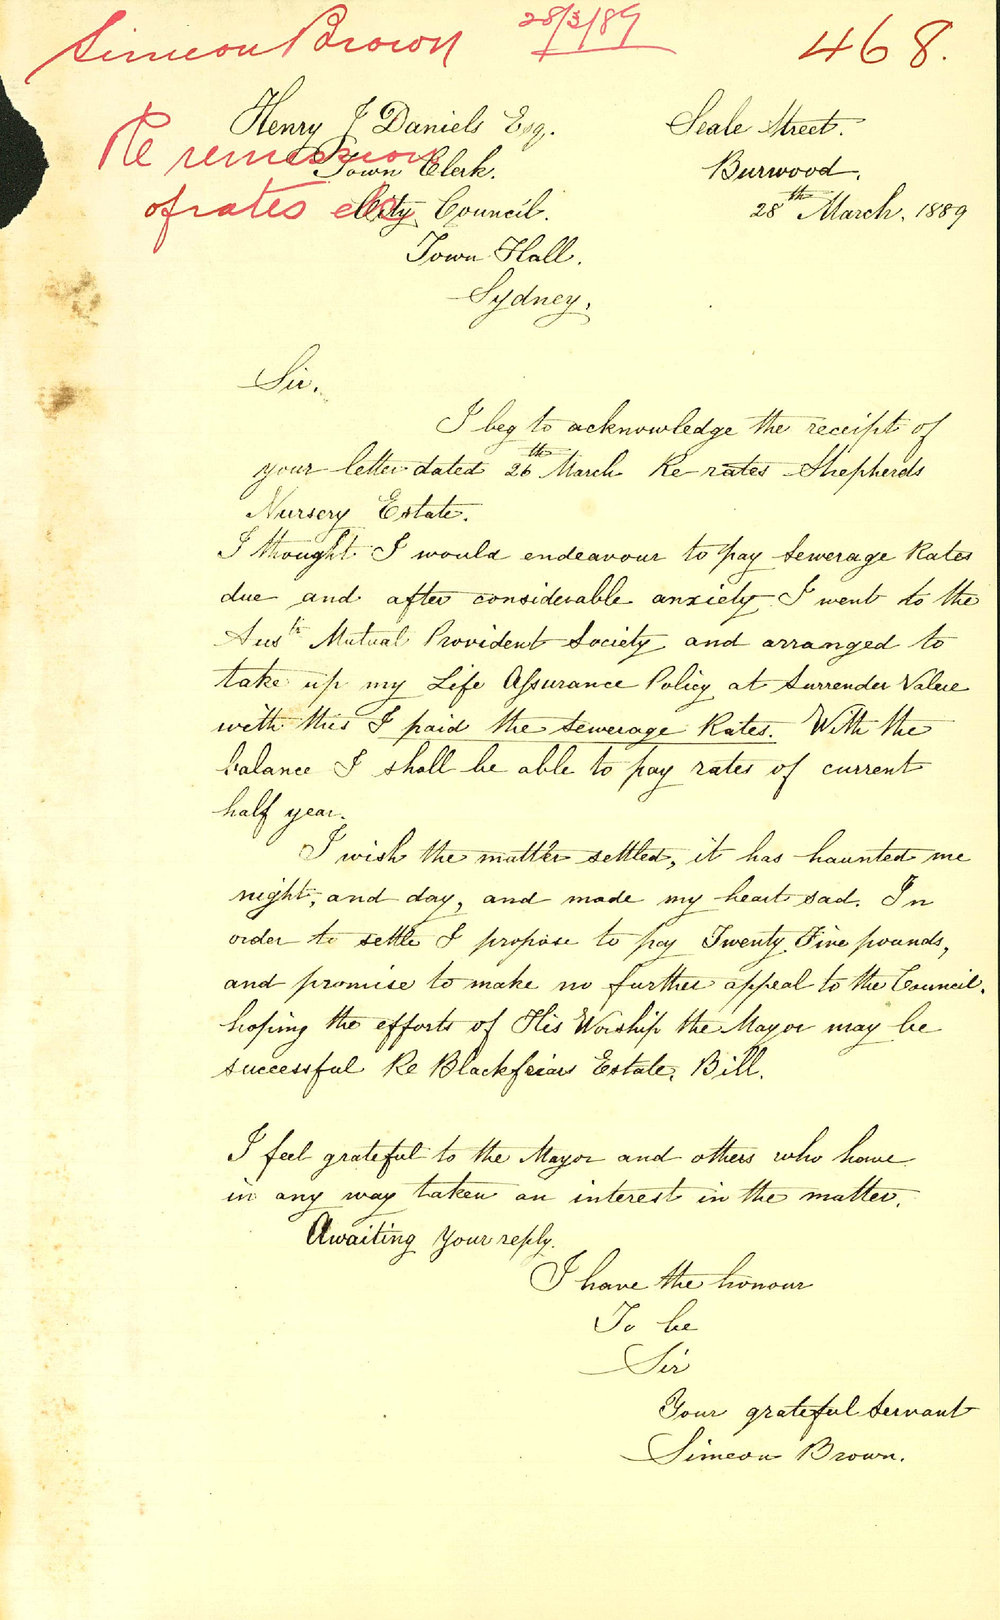 Simeon Brown 28/3/89 468.
Henry J Daniels Esq.
Town Clerk.
City Council.
Town Hall.
Sydney.
Re remission
of rates etc
Seale Street.
Burwood.
28th March. 1889
Sir.
I beg to acknowledge the receipt of
your letter dated 26th March Re rates Shepherds
Nursery Estate.
I thought I would endeavour to pay Sewerage Rates
due and after considerable anxiety I went to the
Austn Mutual Provident Society and arranged to
take up my Life Assurance Policy at Surrender Value
with this I paid the Sewerage Rates. With the
balance I shall be able to pay rates of current
half year.
I wish the matter settled, it has haunted me
night, and day, and made my heart sad. In
order to settle I propose to pay Twenty Five pounds,
and promise to make no further appeal to the Council.
hoping the efforts of His Worship the Mayor may be
successful Re Blackfriars Estate, Bill.
I feel grateful to the Mayor and others who have
in any way taken an interest in the matter.
Awaiting your reply.
I have the honour
To be
Sir
Your grateful Servant
Simeon Brown.